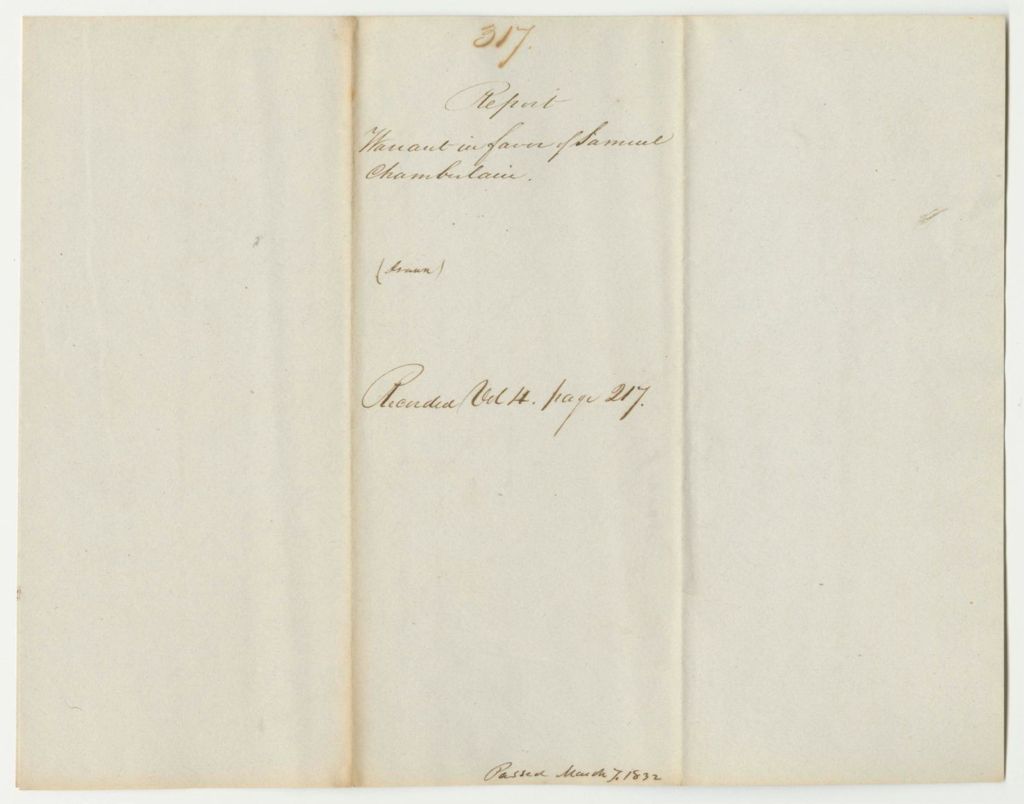 317.
Report
Warrant in favor of Samuel
Chamberlain.
(drawn)
Recorded Vol 4. page 217.
Passed March 7, 1832